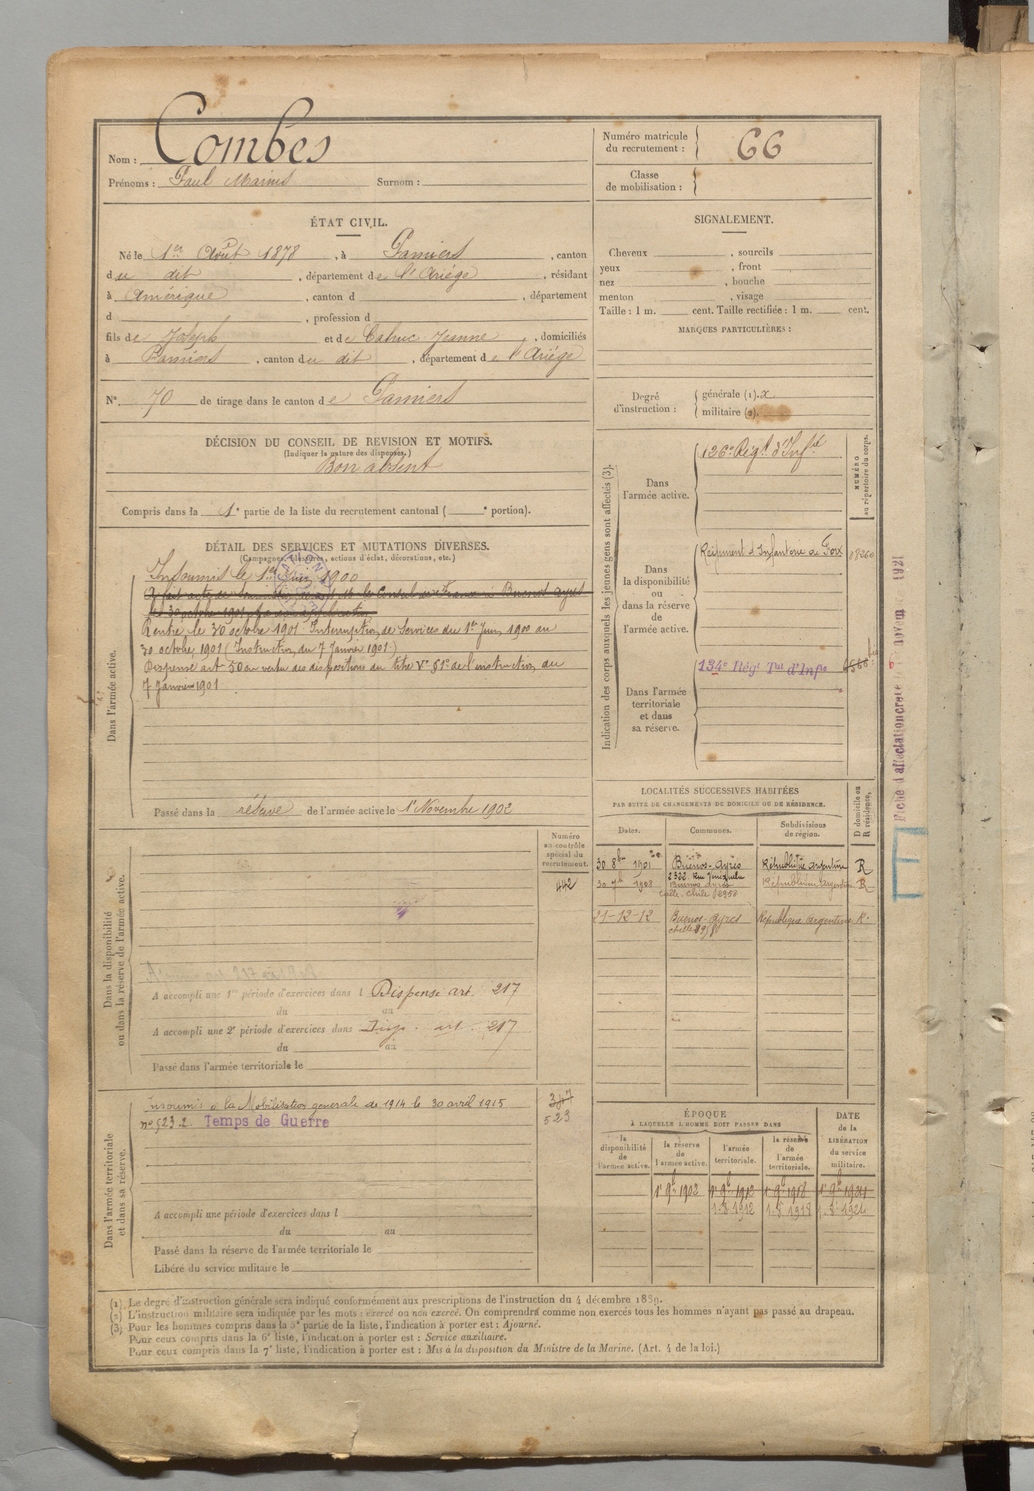 Nom : Combes
Prénoms : Paul Marius Surnom :
Numéro matricule du recrutement : 66
Classe de mobilisation :
ÉTAT CIVIL.
Né le 1er Août 1878, à Pamiers, canton
du dit, département de l'Ariège, résidant
à Amérique, canton d , département
d , profession d
fils de Joseph et de Jeanne, domiciliés
à Pamiers, canton du dit, département de l'Ariège
N° 70 de tirage dans le canton de Pamiers
SIGNALEMENT.
Cheveux , sourcils
yeux , front
nez , bouche
menton , visage
Taille : 1 m. cent. Taille rectifiée : 1 m. cent.
MARQUES PARTICULIÈRES :
Degré d'instruction :
générale (1). x
militaire (2).
DÉCISION DU CONSEIL DE REVISION ET MOTIFS.
(Indiquer la nature des dispenses.)
Bon absent
Compris dans la 1e partie de la liste du recrutement cantonal ( e portion).
DÉTAIL DES SERVICES ET MUTATIONS DIVERSES.
(Campagnes, blessures, actions d'éclat, décorations, etc.)
Dans l'armée active.
Insoumis le 1er Juin 1900
A fait acte de soumission devant M. le Consul de France à Buenos ayres
le 30 octobre 1901
Rentré le 30 octobre 1901 Interruption de Services du 1er Juin 1900 au
30 octobre 1901 (Instruction du 7 Janvier 1901)
Dispensé art 50 en vertu des dispositions du titre V § 1er de l'instruction du
7 Janvier 1901
Passé dans la réserve de l'armée active le 1er Novembre 1902
Indication des corps auxquels les jeunes gens sont affectés (3).
NUMÉRO au répertoire du corps.
Dans l'armée active.
126e Régt. d'Inf.
Dans la disponibilité ou dans la réserve de l'armée active.
Régiment d'Infanterie de Foix
Dans l'armée territoriale et dans sa réserve.
134e Régt Tal d'Infie
Fiche d'affectation
1921
LOCALITÉS SUCCESSIVES HABITÉES
PAR SUITE DE CHANGEMENTS DE DOMICILE OU DE RÉSIDENCE.
Dates. Communes. Subdivisions de région. D domicile ou R résidence.
30 8bre 1901 Buenos-ayres République argentine R
1908 Buenos ayres République argentine R
calle Chile
21-12-12 Buenos-ayres République argentine R.
Numéro au contrôle spécial du recrutement.
442
Dans la disponibilité ou dans la réserve de l'armée active.
A accompli une 1re période d'exercices dans l Dispensé art. 217
du au
A accompli une 2e période d'exercices dans Disp. art. 217
du au
Passé dans l'armée territoriale le
Dans l'armée territoriale et dans sa réserve.
Insoumis à la Mobilisation générale de 1914 le 30 avril 1915
n° 523.2. Temps de Guerre
523
A accompli une période d'exercices dans l
du au
Passé dans la réserve de l'armée territoriale le
Libéré du service militaire le
ÉPOQUE
À LAQUELLE L'HOMME DOIT PASSER DANS
DATE de la LIBÉRATION du service militaire.
la disponibilité de l'armée active.
la réserve de l'armée active.
l'armée territoriale.
la réserve de l'armée territoriale.
1er 9bre 1902 1er 9bre 1912 1er 9bre 1918 1er 9bre 1924
1-8-1912 1-8-1918 1-8-1924
(1) Le degré d'instruction générale sera indiqué conformément aux prescriptions de l'instruction du 4 décembre 1889.
(2) L'instruction militaire sera indiquée par les mots : exercé ou non exercé. On comprendra comme non exercés tous les hommes n'ayant pas passé au drapeau.
(3) Pour les hommes compris dans la 5e partie de la liste, l'indication à porter est : Ajourné.
Pour ceux compris dans la 6e liste, l'indication à porter est : Service auxiliaire.
Pour ceux compris dans la 7e liste, l'indication à porter est : Mis à la disposition du Ministre de la Marine. (Art. 4 de la loi.)